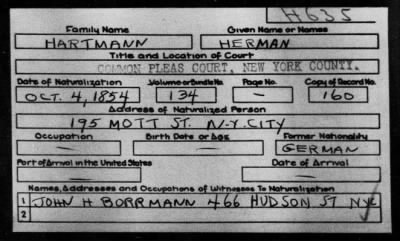 H635
Family Name Given Name or Names
HARTMANN HERMAN
Title and Location of Court
COMMON PLEAS COURT, NEW YORK COUNTY.
Date of Naturalization Volume or Bundle No. Page No. Copy of Record No.
OCT. 4, 1854 134 — 160
Address of Naturalized Person
195 MOTT ST. N.Y. CITY
Occupation Birth Date or Age Former Nationality
— — GERMAN
Port of Arrival in the United States Date of Arrival
— —
Names, Addresses and Occupations of Witnesses To Naturalization
1 JOHN H BORRMANN 466 HUDSON ST NYC
2